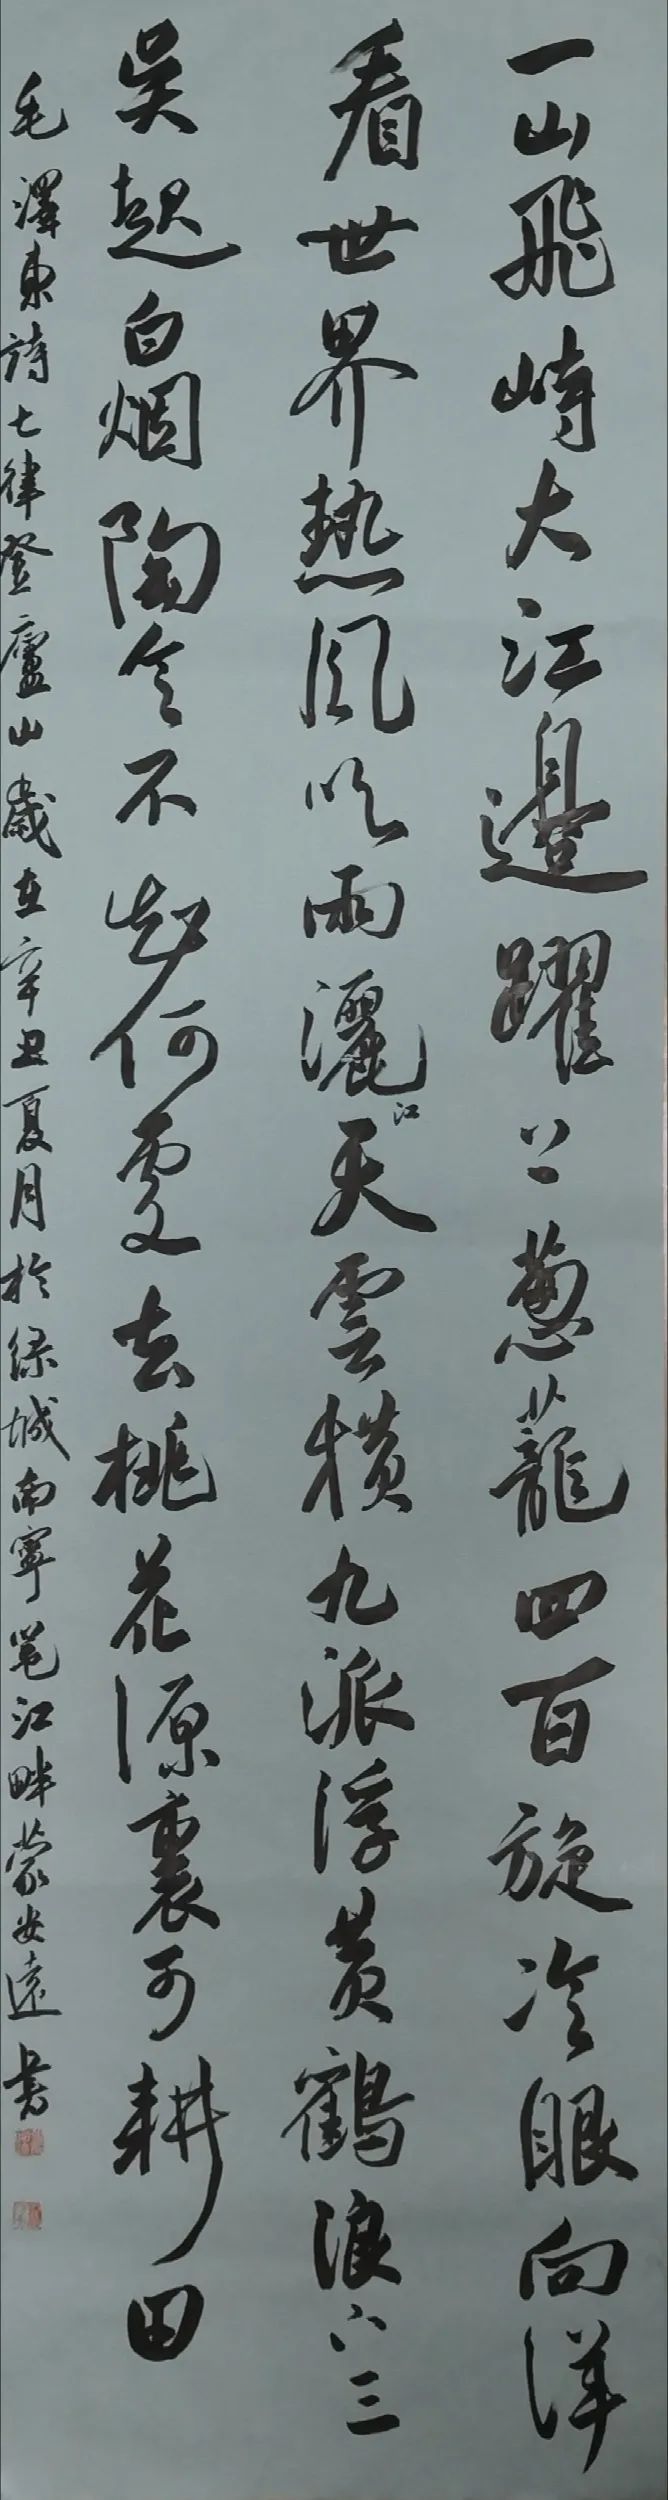 一山飛峙大江邊躍上葱蘢四百旋冷眼向洋
看世界热風吹雨灑江天雲横九派浮黄鶴浪下三
吴起白烟陶令不知何處去桃花源裏可耕田
毛澤東詩七律登廬山歲在辛丑夏月於绿城南寧邕江畔蒙安遠書